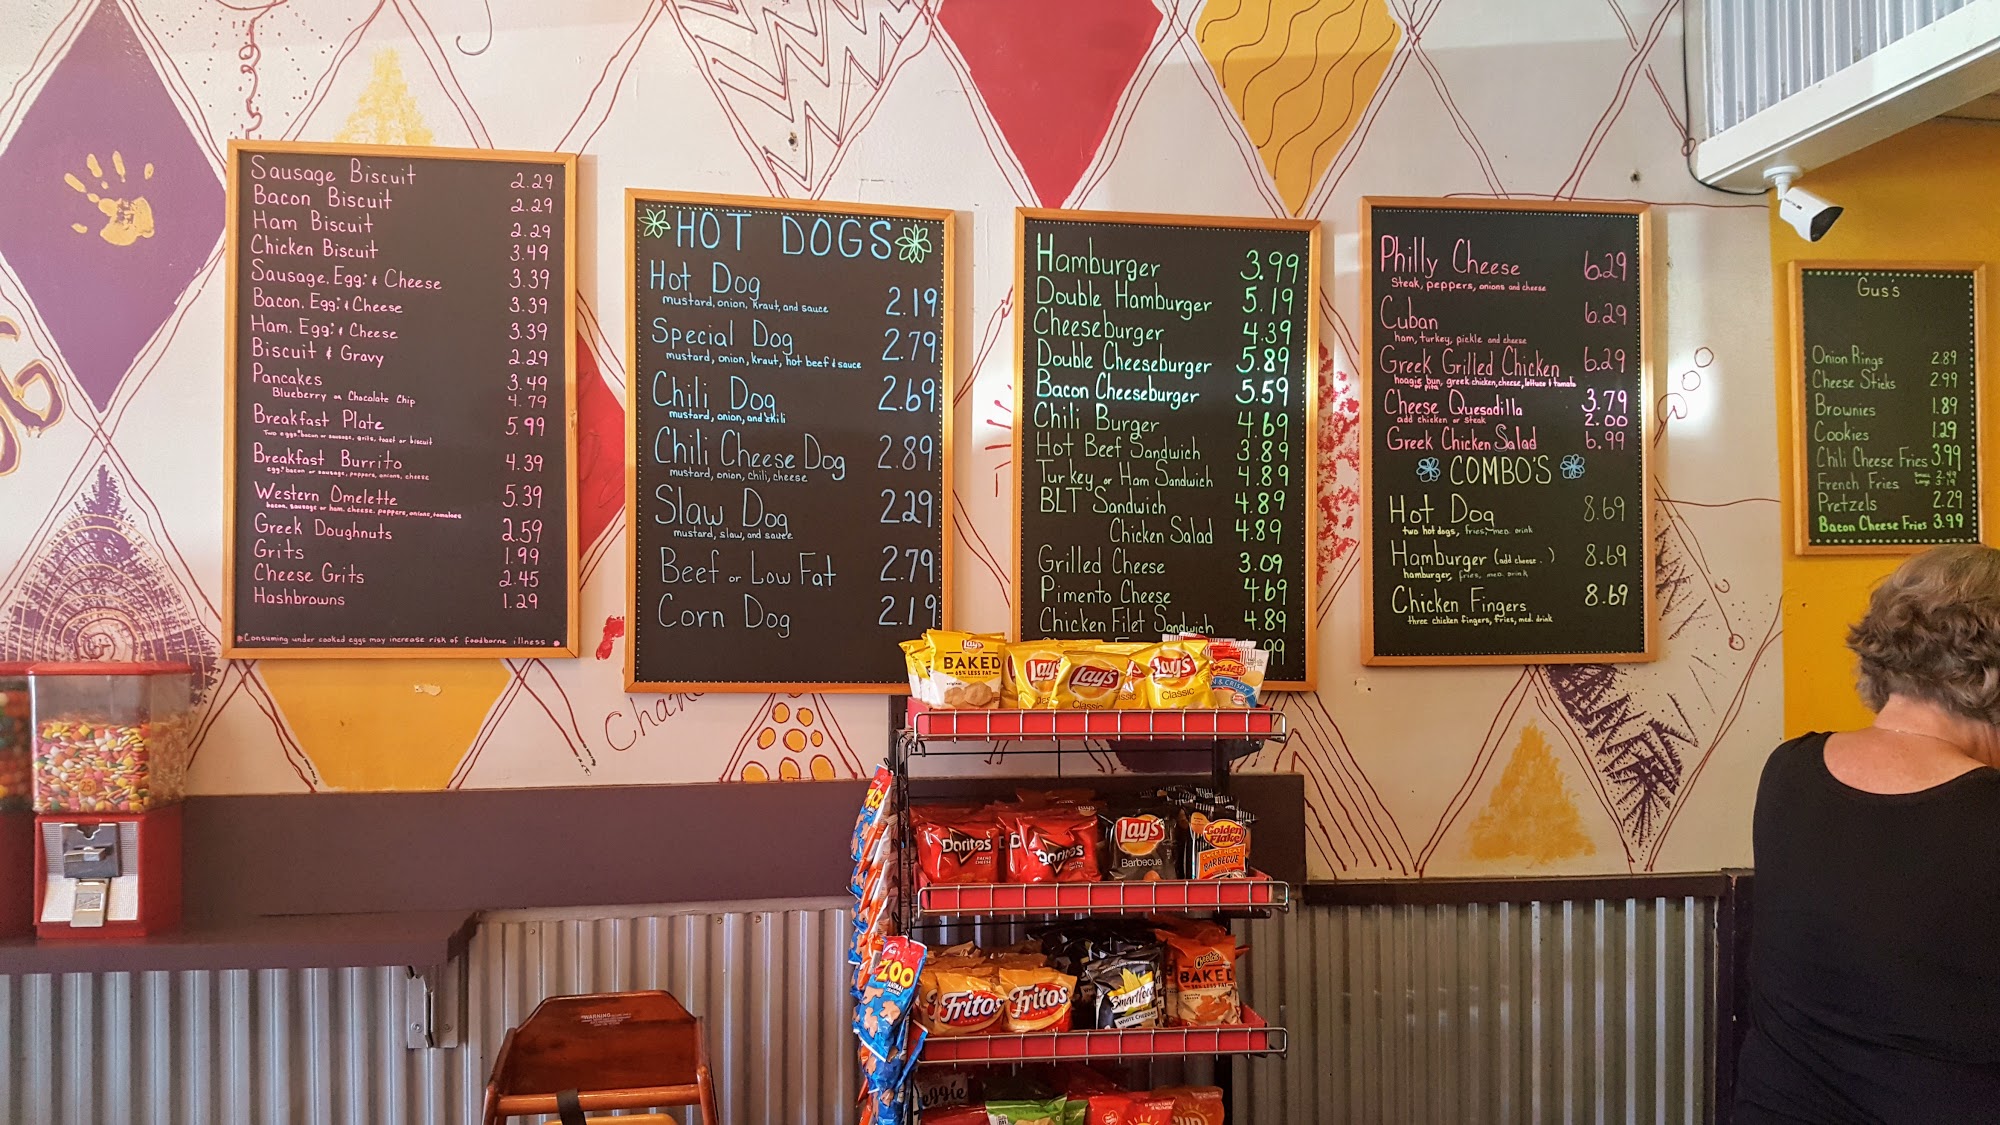 Sausage Biscuit 2.29
Bacon Biscuit 2.29
Ham Biscuit 2.29
Chicken Biscuit 3.49
Sausage, Egg, & Cheese 3.39
Bacon, Egg, & Cheese 3.39
Ham, Egg, & Cheese 3.39
Biscuit & Gravy 2.29
Pancakes 3.49
Blueberry or Chocolate Chip 4.79
Breakfast Plate 5.99
Two eggs, bacon or sausage, grits, toast or biscuit
Breakfast Burrito 4.39
egg, bacon or sausage, peppers, onions, cheese
Western Omelette 5.39
bacon, sausage or ham, cheese, peppers, onions, tomatoes
Greek Doughnuts 2.59
Grits 1.99
Cheese Grits 2.45
Hashbrowns 1.29
*Consuming under cooked eggs may increase risk of foodborne illness
HOT DOGS
Hot Dog 2.19
mustard, onion, kraut, and sauce
Special Dog 2.79
mustard, onion, kraut, hot beef & sauce
Chili Dog 2.69
mustard, onion, and chili
Chili Cheese Dog 2.89
mustard, onion, chili, cheese
Slaw Dog 2.29
mustard, slaw, and sauce
Beef or Low Fat 2.79
Corn Dog 2.19
Hamburger 3.99
Double Hamburger 5.19
Cheeseburger 4.39
Double Cheeseburger 5.89
Bacon Cheeseburger 5.59
Chili Burger 4.69
Hot Beef Sandwich 3.89
Turkey or Ham Sandwich 4.89
BLT Sandwich 4.89
Chicken Salad 4.89
Grilled Cheese 3.09
Pimento Cheese 4.69
Chicken Filet Sandwich 4.89
99
Philly Cheese 6.29
steak, peppers, onions and cheese
Cuban 6.29
ham, turkey, pickle and cheese
Greek Grilled Chicken 6.29
hoagie bun, greek chicken, cheese, lettuce & tomato
or pita
Cheese Quesadilla 3.79
add chicken or steak 2.00
Greek Chicken Salad 6.99
COMBO'S
Hot Dog 8.69
two hot dogs, fries, med. drink
Hamburger (add cheese . ) 8.69
hamburger, fries, med. drink
Chicken Fingers 8.69
three chicken fingers, fries, med. drink
Gus's
Onion Rings 2.89
Cheese Sticks 2.99
Brownies 1.89
Cookies 1.29
Chili Cheese Fries 3.99
French Fries Small 2.49
Large 3.19
Pretzels 2.29
Bacon Cheese Fries 3.99
Chan
Lay's
BAKED
Lay's
Lay's
Classic
Lay's
Classic
Doritos
Doritos
Lay's
Barbecue
Golden Flake
BARBECUE
ZOO
Fritos
Fritos
Smartfood
WHITE CHEDDAR
Cheetos
BAKED
WARNING